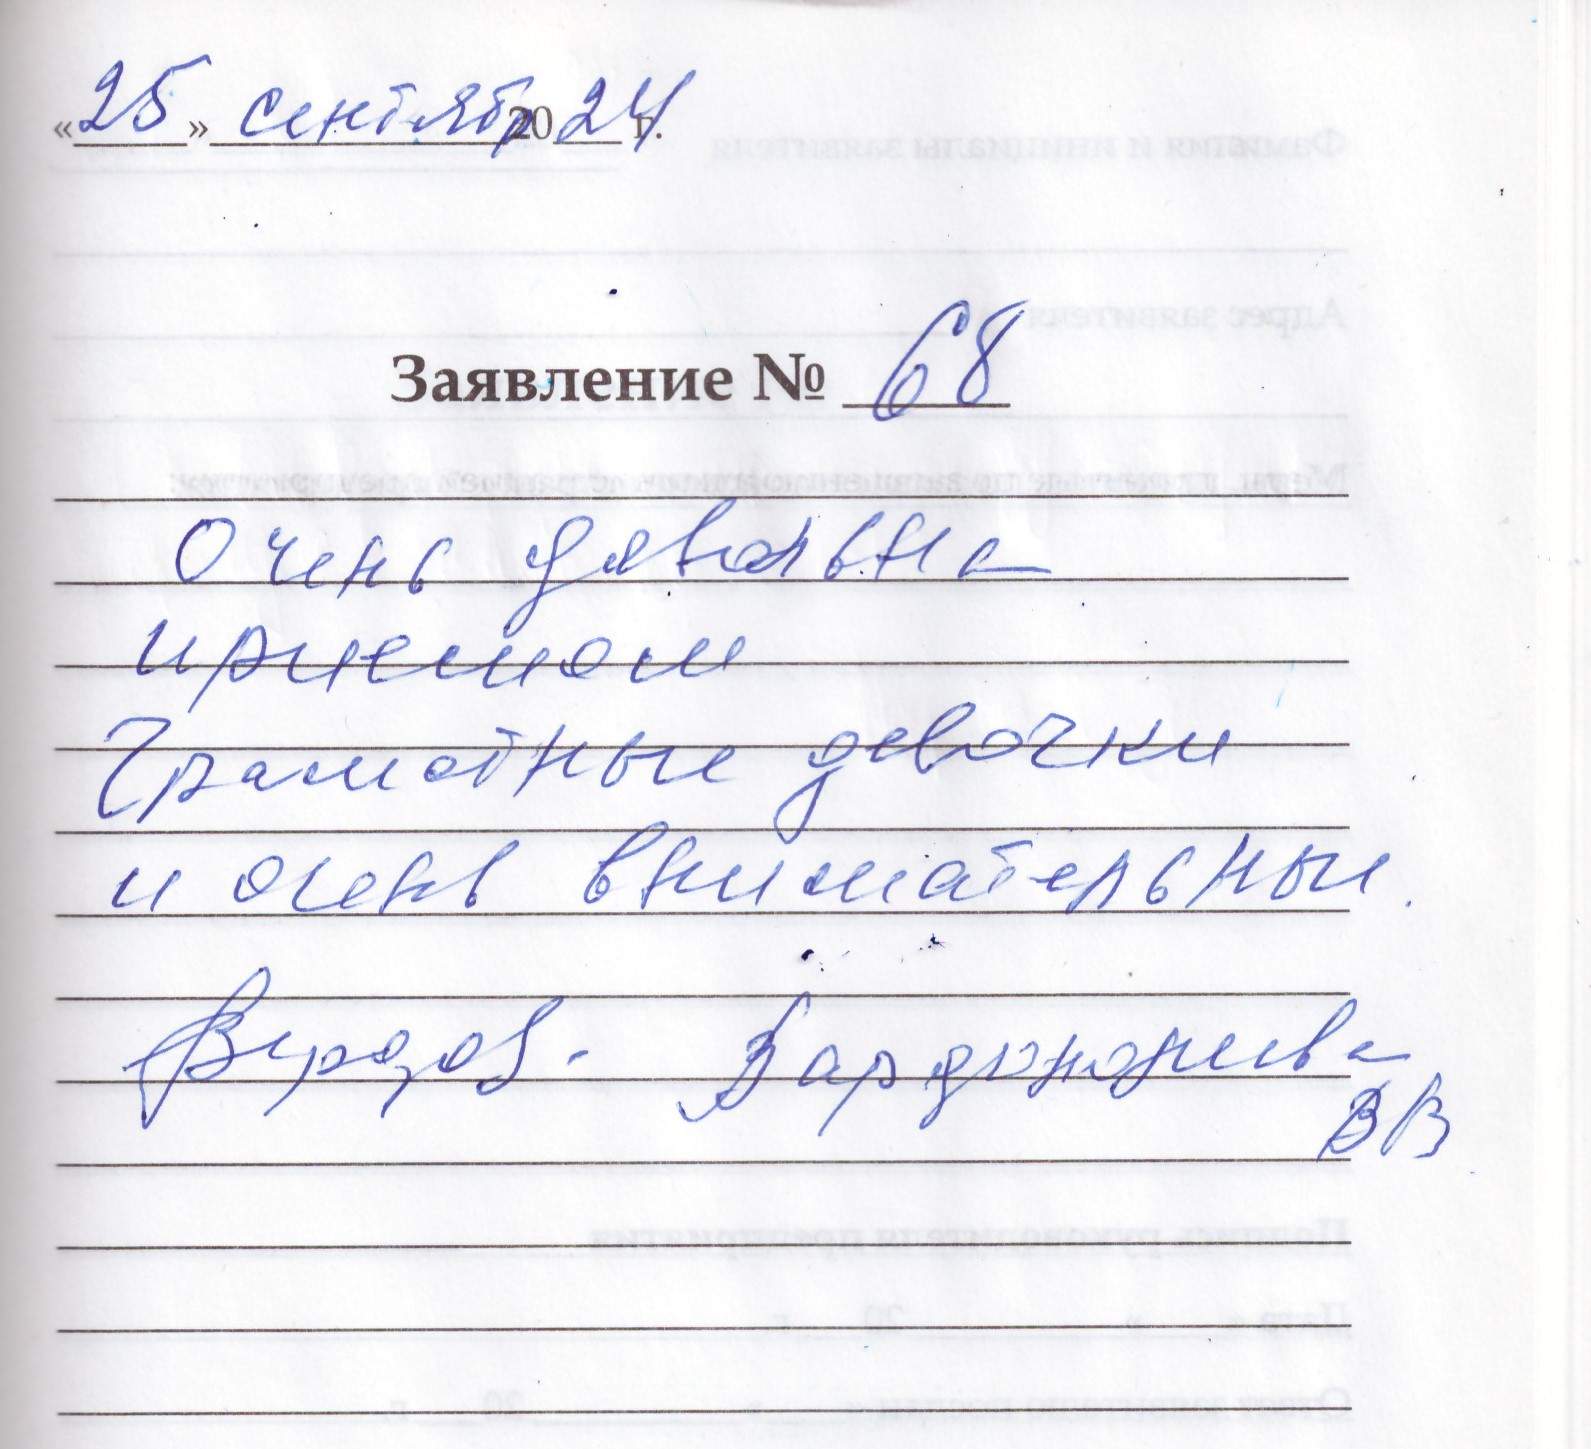 «25» сентябр 2024 г.
Заявление № 68
Очень довольна
приемом
Грамотные девочки
и очень внимательные.
ВВ